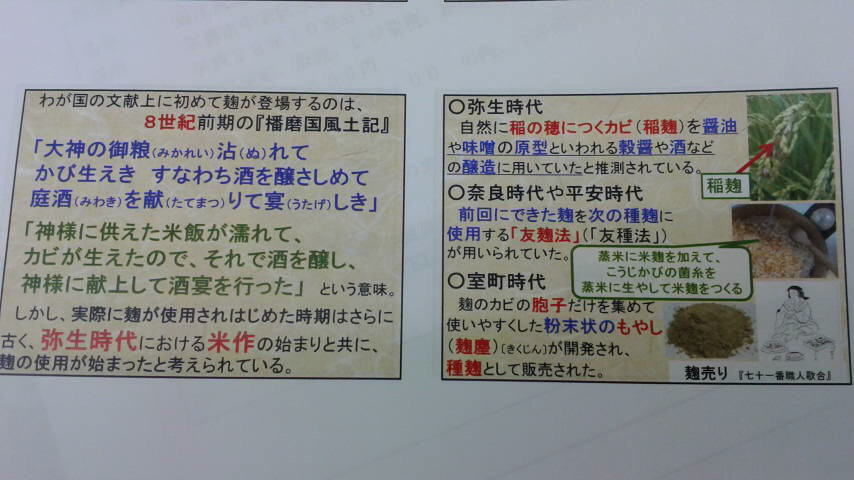 わが国の文献上に初めて麹が登場するのは、
8世紀前期の『播磨国風土記』
「大神の御粮(みかれい)沾(ぬ)れて
かび生えき すなわち酒を醸さしめて
庭酒(みわき)を献(たてまつ)りて宴(うたげ)しき」
「神様に供えた米飯が濡れて、
カビが生えたので、それで酒を醸し、
神様に献上して酒宴を行った」 という意味。
しかし、実際に麹が使用されはじめた時期はさらに
古く、弥生時代における米作の始まりと共に、
麹の使用が始まったと考えられている。
〇弥生時代
自然に稲の穂につくカビ(稲麹)を醤油
や味噌の原型といわれる穀醤や酒など
の醸造に用いていたと推測されている。
稲麹
〇奈良時代や平安時代
前回にできた麹を次の種麹に
使用する「友麹法」(「友種法」)
が用いられていた。
蒸米に米麹を加えて、
こうじかびの菌糸を
蒸米に生やして米麹をつくる
〇室町時代
麹のカビの胞子だけを集めて
使いやすくした粉末状のもやし
(麹塵)〔きくじん〕が開発され、
種麹として販売された。
麹売り 『七十一番職人歌合』